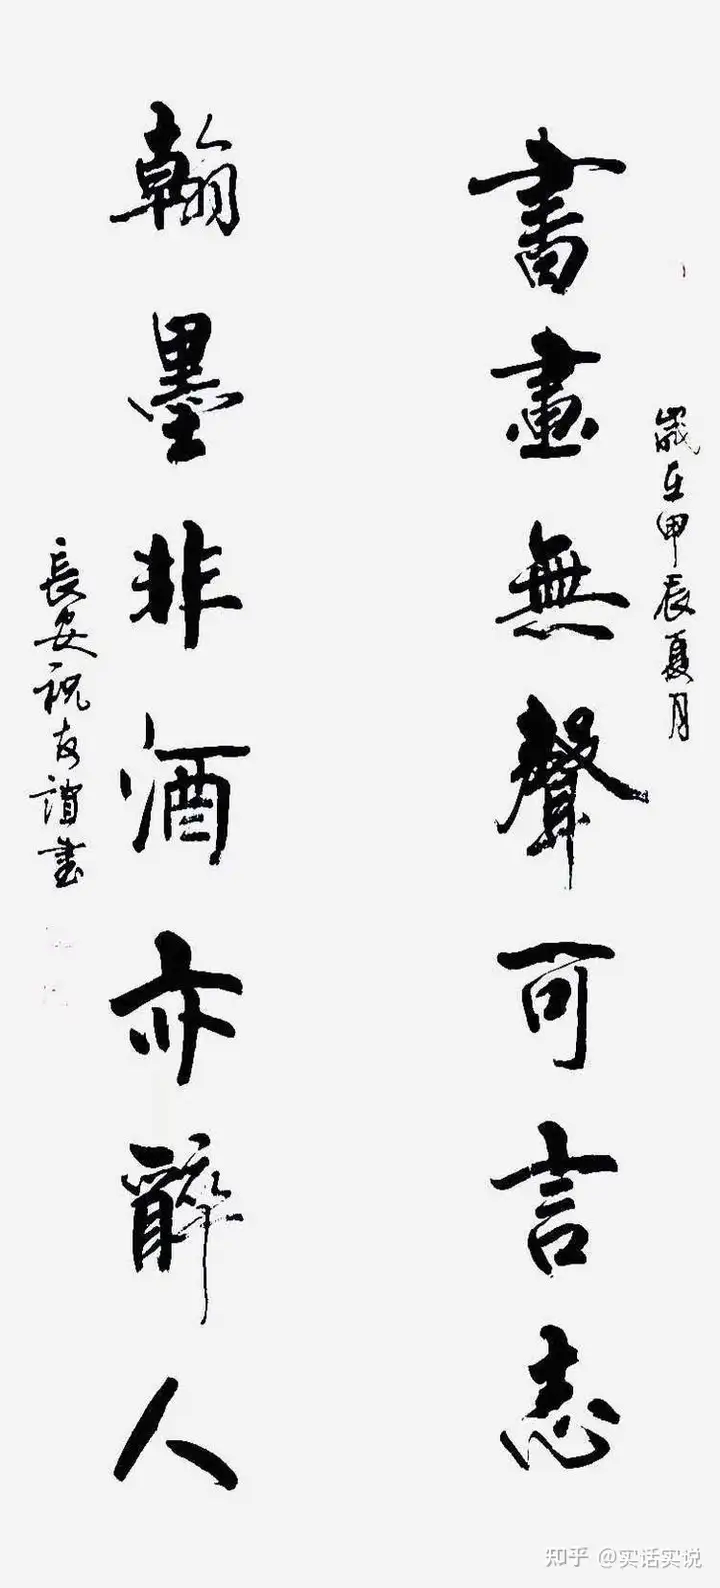 歲在甲辰夏月
書畫無聲可言志
翰墨非酒亦醉人
長安祝友誼書
知乎 @实话实说